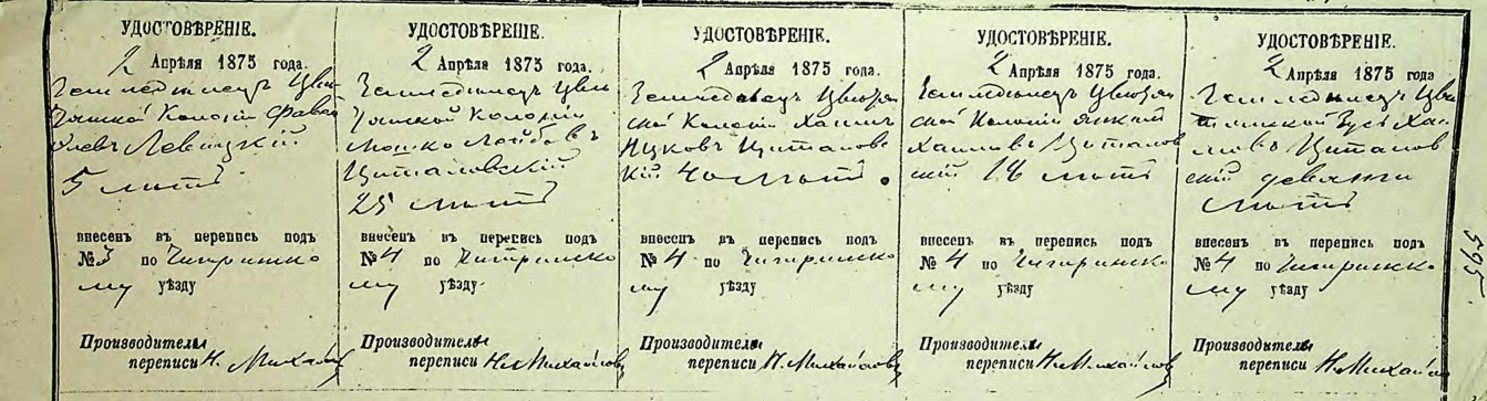 УДОСТОВѢРЕНІЕ.
2 Апрѣля 1875 года.
Земледѣлецъ
Колоніи
Левицкій
5 лѣтъ
внесенъ въ перепись подъ
№ 3 по Чигиринско
му уѣзду
Производитель
переписи Н. Михайлов
УДОСТОВѢРЕНІЕ.
2 Апрѣля 1875 года.
Земледѣлецъ
Колоніи
Мошко Лейбовъ
Циталовскій
25 лѣтъ
внесенъ въ перепись подъ
№ 4 по Чигиринско
му уѣзду
Производитель
переписи Н. Михайловъ
УДОСТОВѢРЕНІЕ.
2 Апрѣля 1875 года.
Земледѣлецъ
ской Колоніи Хаимъ
Ицковъ Циталов
кій 40 лѣтъ.
внесенъ въ перепись подъ
№ 4 по Чигиринско
му уѣзду
Производитель
переписи Н. Михайловъ
УДОСТОВѢРЕНІЕ.
2 Апрѣля 1875 года.
Земледѣлецъ
ской Колоніи
Хаимовъ Циталов
скій 18 лѣтъ
внесенъ въ перепись подъ
№ 4 по Чигиринско
му уѣзду
Производитель
переписи Н. Михайлов
УДОСТОВѢРЕНІЕ.
2 Апрѣля 1875 года
Земледѣлецъ
Зусь Хаи
мовъ Циталов
скій девяти
лѣтъ
внесенъ въ перепись подъ
№ 4 по Чигиринско
му уѣзду
Производитель
переписи Н. Михайло
595.